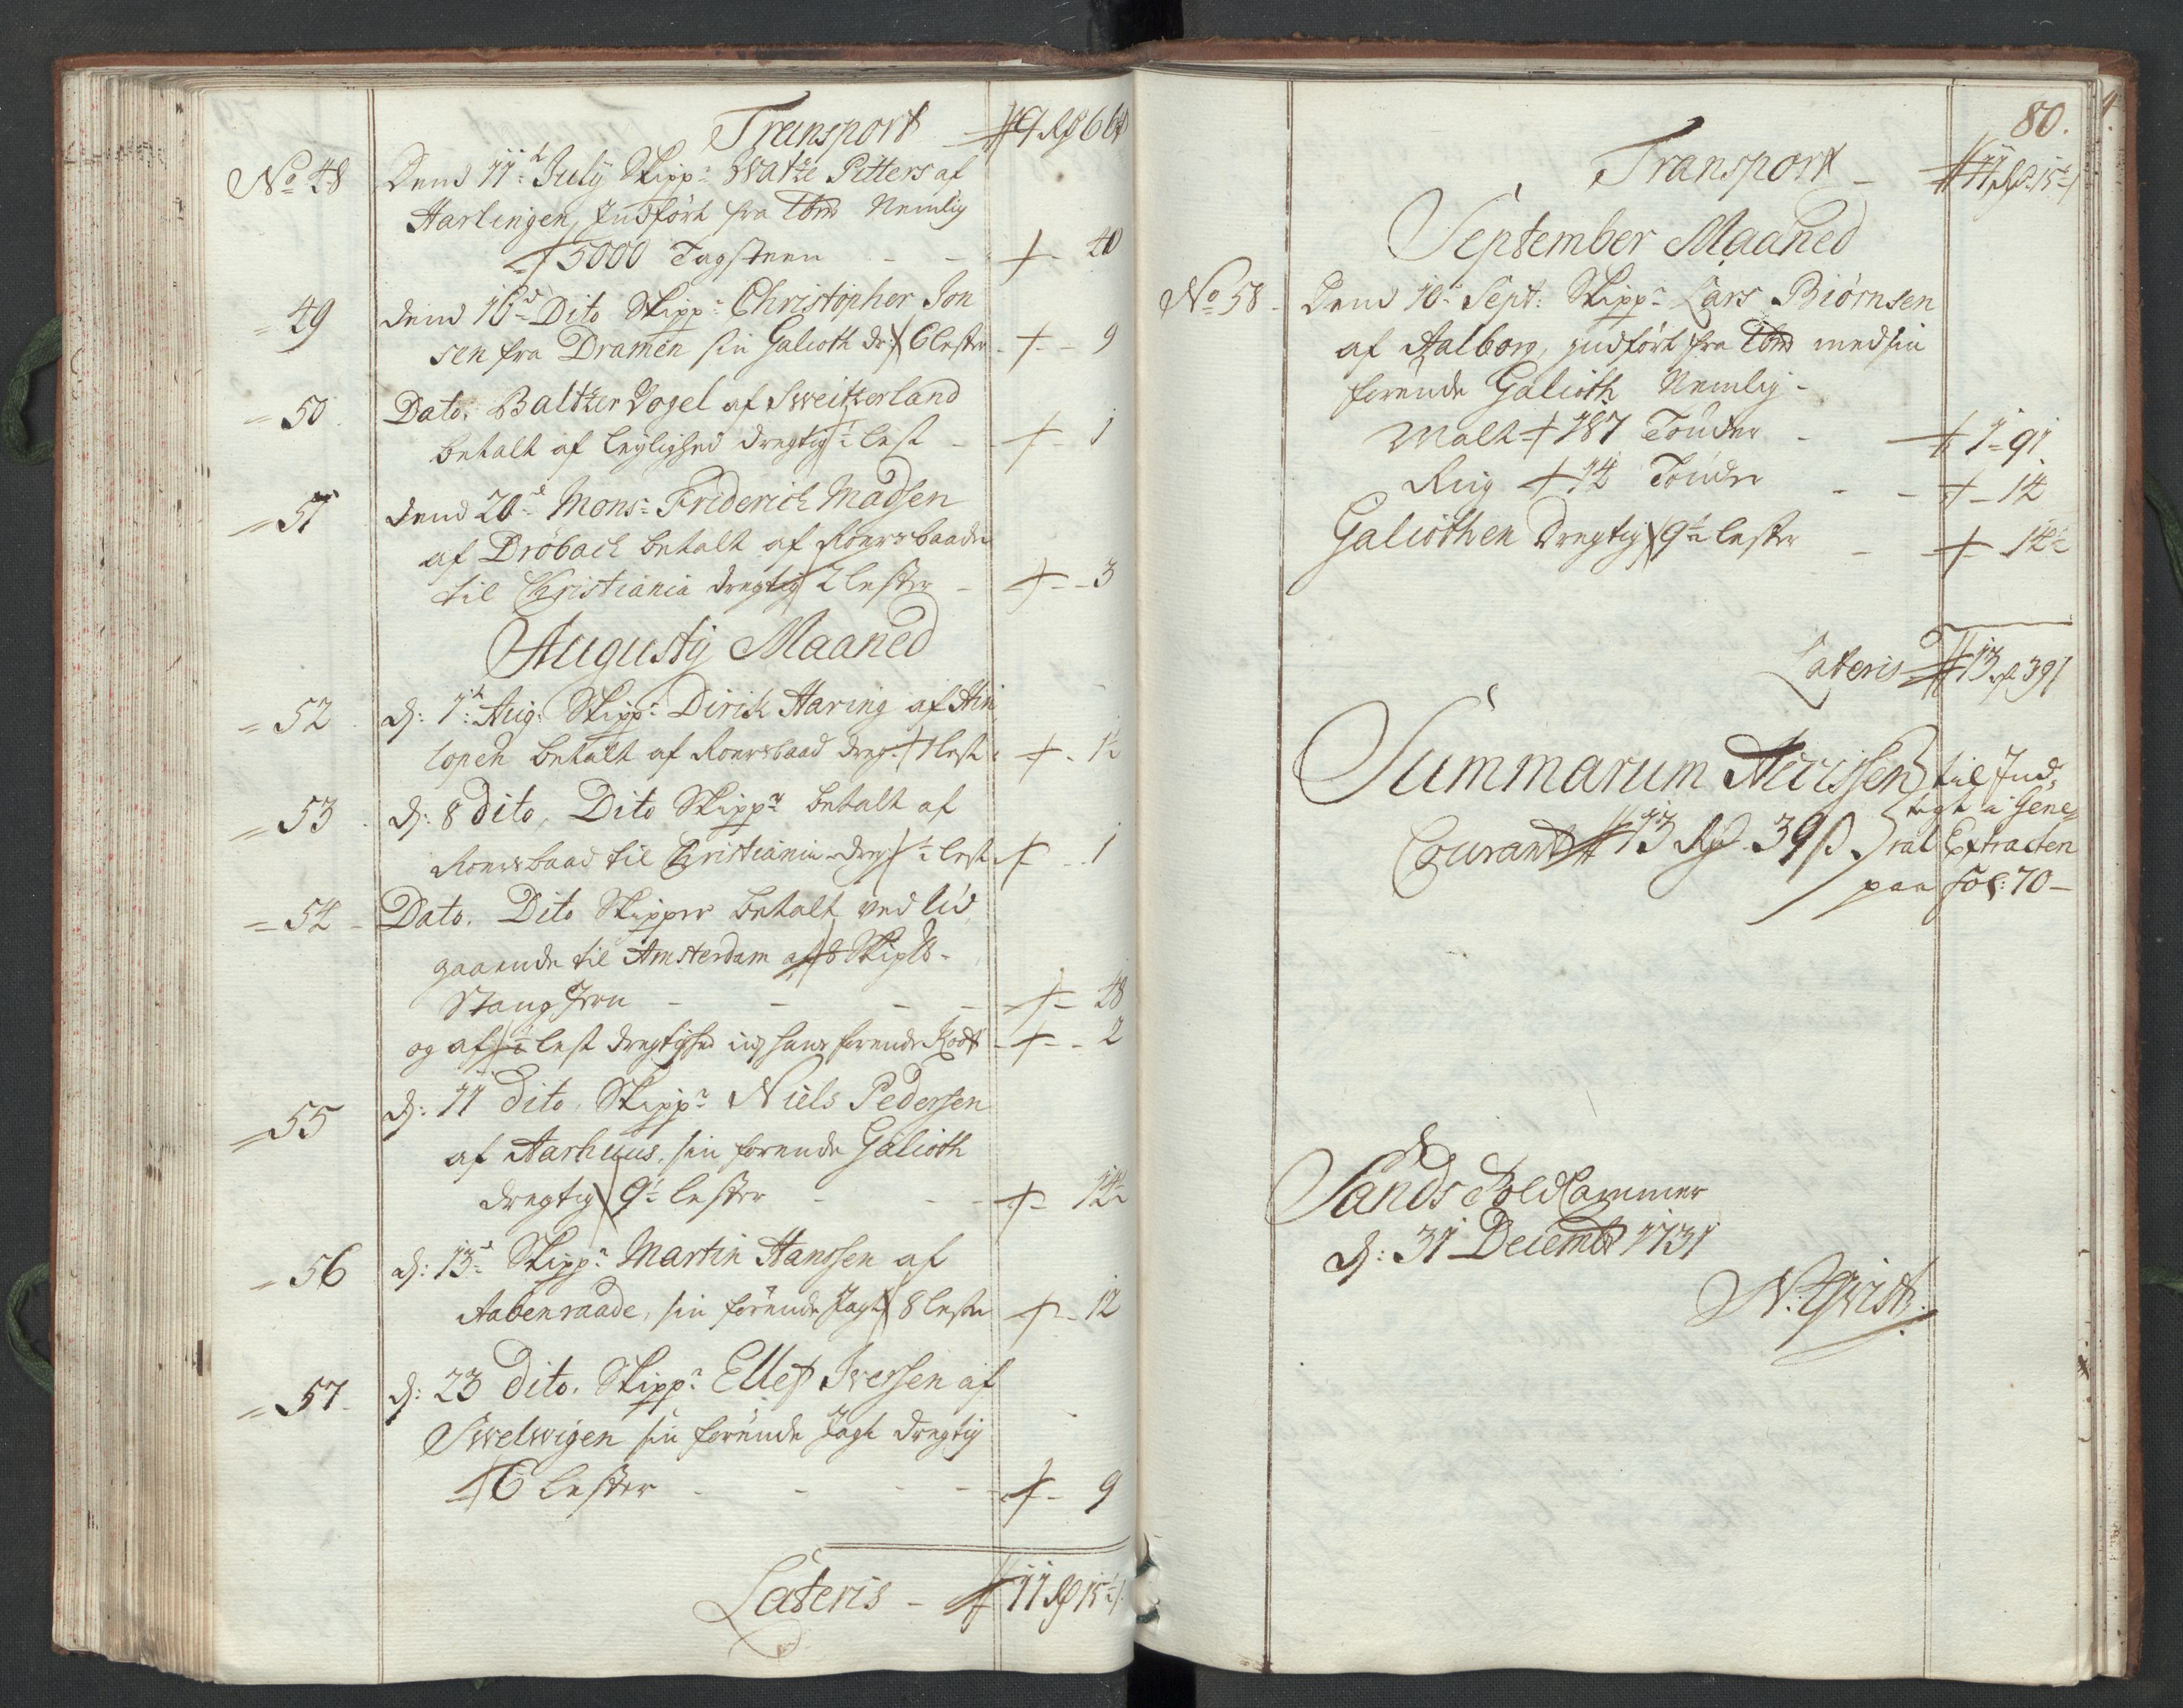 Transport ⸗ 9 Rd 64
No 48 Dend 11te July Skippr Watze Pitters af
Harlingen, Indført fra Nemlig
5000 Tagsteen - - 40
49 dend 16de Dito Skippr Christopher Jon
sen fra Dramen sin Galioth dr: 6 lester - 9
50 Dato. Baltzer Vogel af Sweitzerland
betalt af leylighed dregtig ½ lest - 1
51 dend 20de Mons: Friderich Madsen
af Drøbach betalt af Roersbaade
til Christiania dregtig 2 lester - 3
Augusty Maaned
52 d: 1te Aug: Skippr Dirick Haring af Hin
lopen betalt af Roersbaad dreg: 1 lest - 1½
53 d: 8 dito, Dito Skippr betalt af
Roersbaad til Christiania dreg: ½ lest - 1
54 Dato. Dito Skipper betalt ved Ud
gaaende til Amsterdam af 8 Skip℔
Stang Jern - - - - 48
og af ½ lest dregtighed udj hans førende - 2
55 d: 11 dito, Skippr Niels Pedersen
af Aarhuus, sin førende Galioth
dregtig 9½ lester - - 14½
56 d: 13de Skippr Martin Hanssen af
Aabenraade, sin førende Jagt 8 lester - 12
57 d: 23 dito. Skippr Ellef Iversen af
Swelwigen sin førende Jagt dregtig
6 lester - - - - 9
Lateris - 11 Rd 15½
80.
Transport - 11 Rd 15½
September Maaned
No 58 Dend 10de Sept: Skippr Lars Biørnsen
af Aalborg, indført fra med sin
førende Galioth Nemlig -
Malt 187 Tønder - 1 - 91
Rug 14 Tønder - - 14
Galiothen Dregtig 9½ lester - 14½
Lateris 13 Rd 39
Summarum til Ind
tegt i Gene
Courant 13 Rd. 39 ß ral Extracten
paa fol: 70 -
Sands Toldkammer
d: 31 Decembr 1731
N: Qvist.